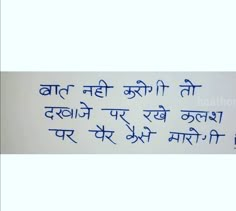 बात नही करोगी तो
दरवाजे पर रखे कलश
पर पैर कैसे मारोगी